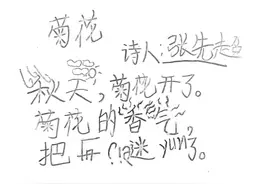 菊花
诗人:张先超
秋天,菊花开了。
菊花的香气,
把 迷yūn了。